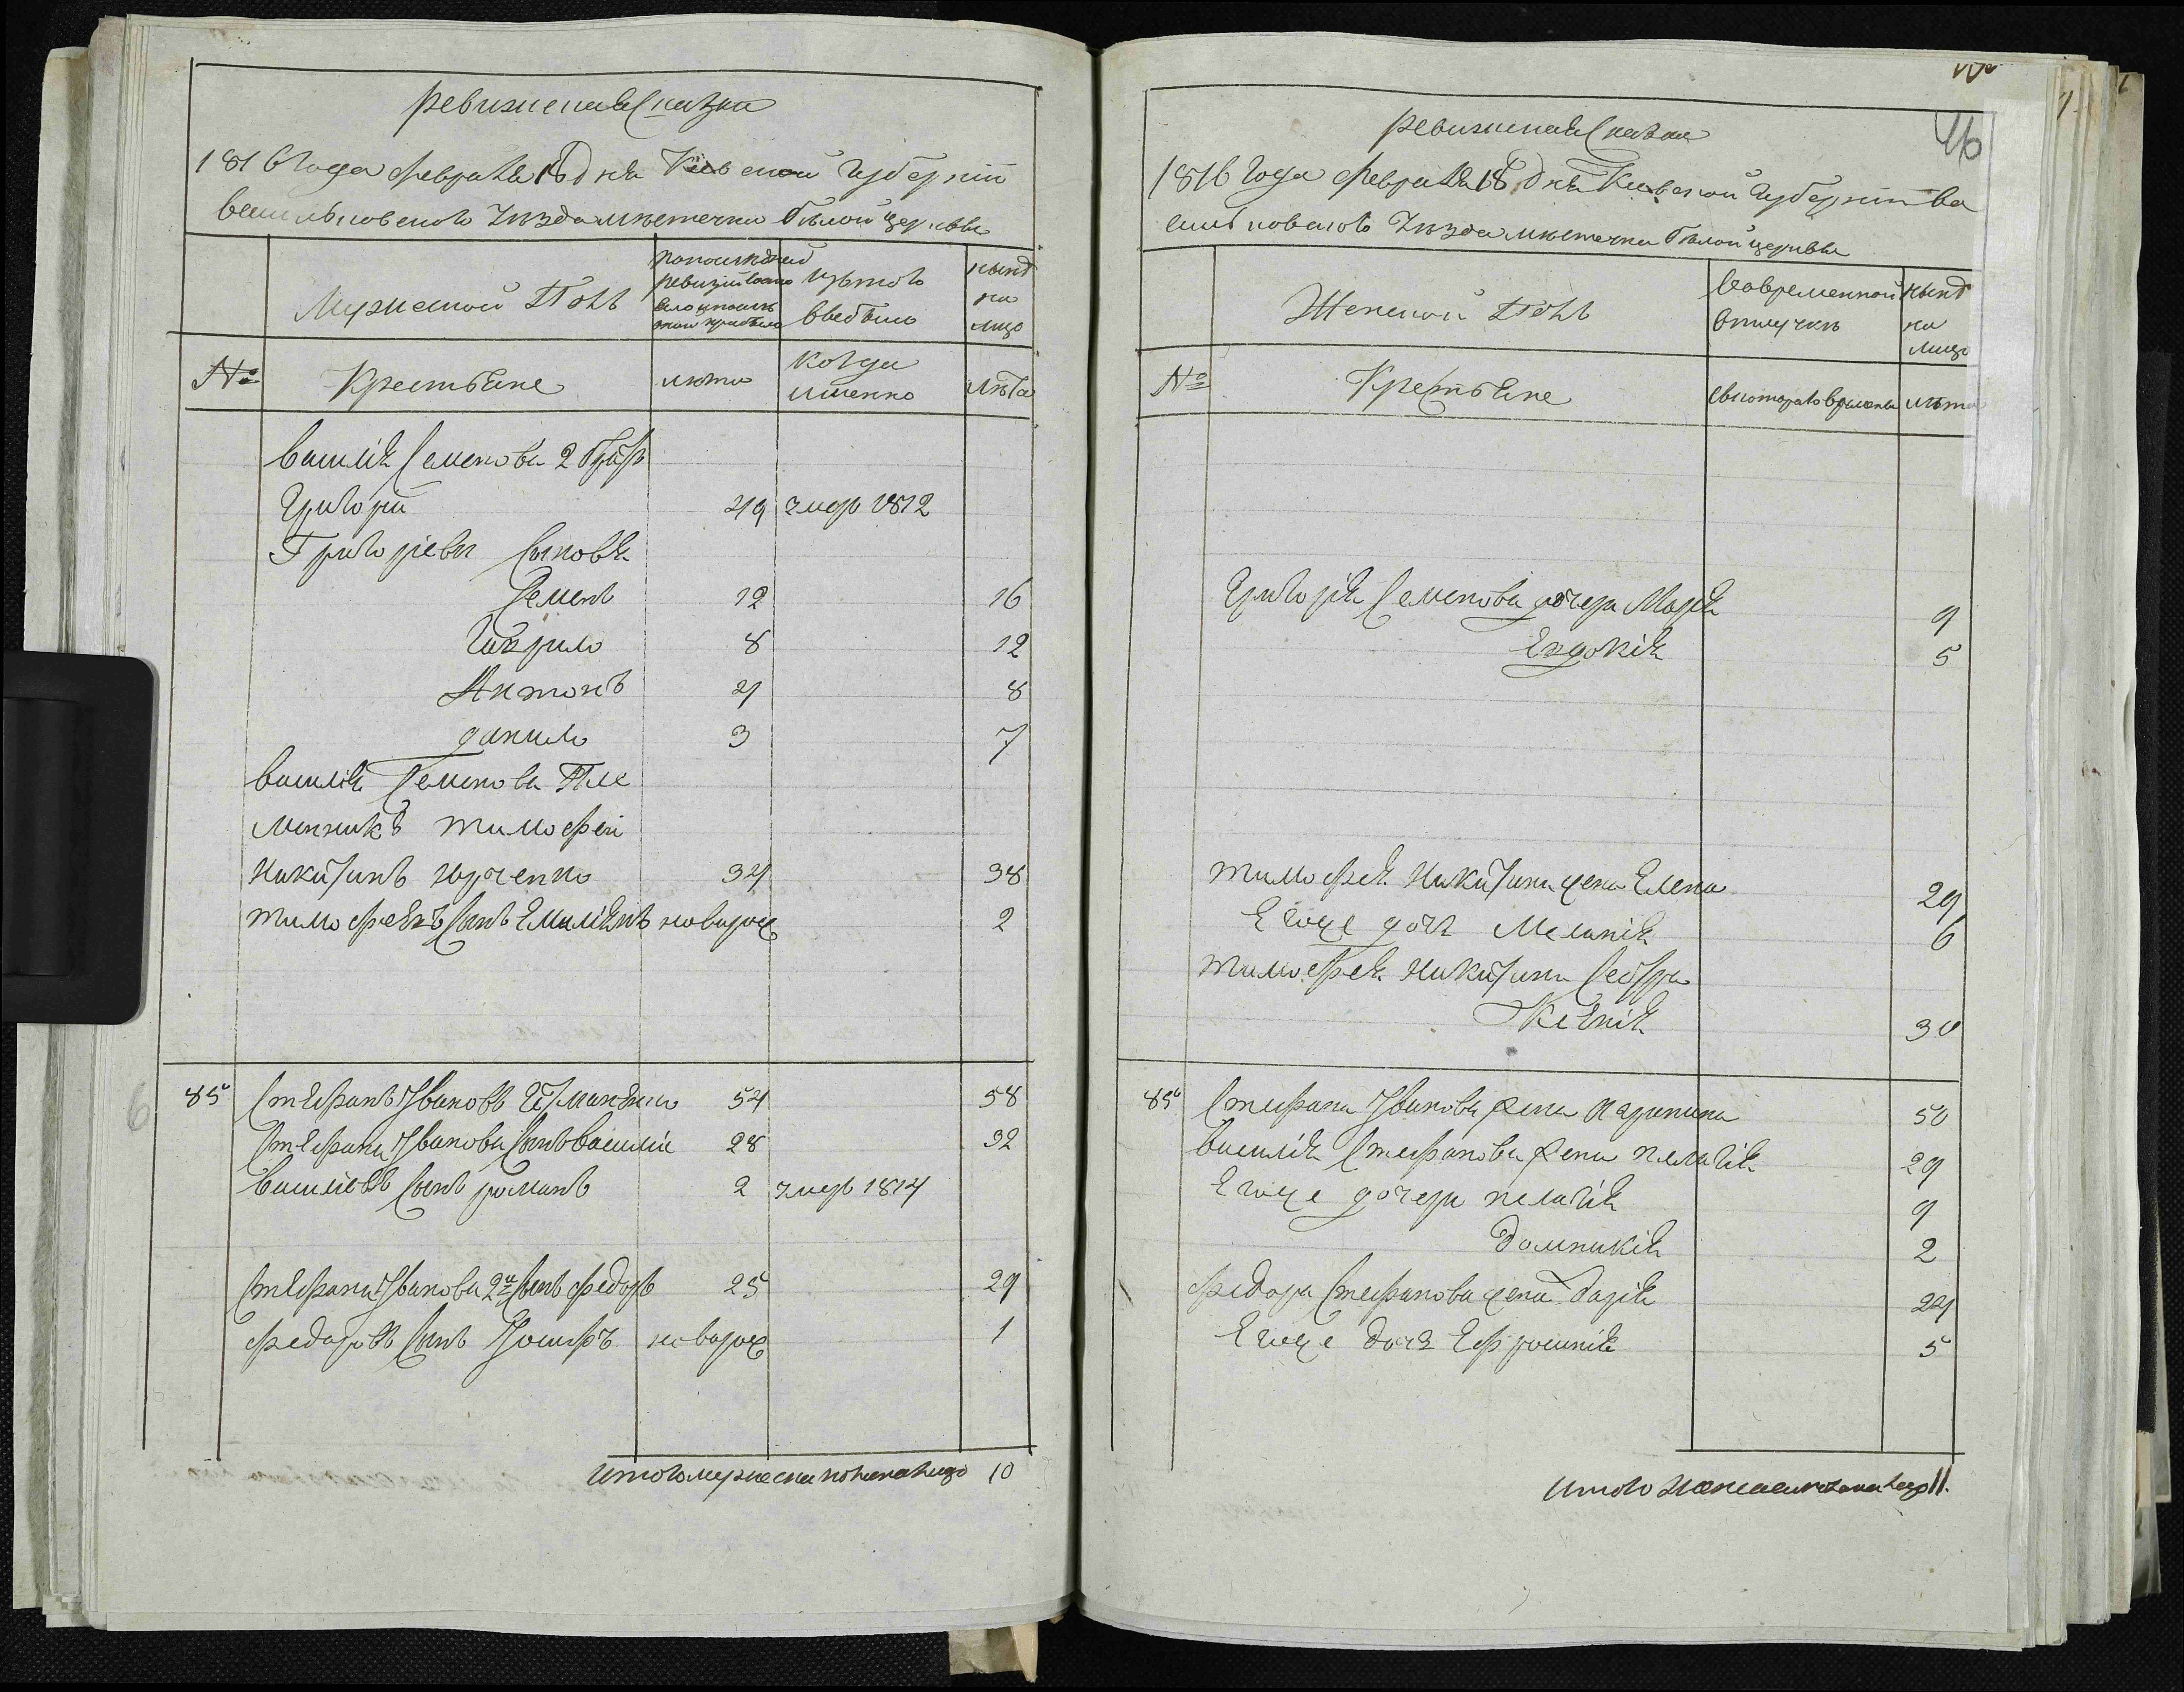 Ревижская Сказка
1816 Года февраля 18 дня Киевской Губернии
васильковского уезда местечка белой церквы
Мужеской Полъ
по последней ревизии состояло и после того прибыло
изъ того выбыло
ныне на лицо
№
Крестьяне
лета
когда именно
лета
василия Семенова 2 братъ
Григорий 49 умре 1812
Григориевы Сыновья
Семенъ 12 16
Гаврило 8 12
Антонъ 4 8
данило 3 7
василия Семенова Пле
мянникъ тимофей
Никитинъ юрченко 34 38
тимофеевъ Сынъ Емилиянъ новорож 2
85 Стефанъ Ивановъ 54 58
Стефана Иванова Сынъ василий 28 32
василіевъ Сынъ романъ 2 умре 1814
Стефана Иванова 2й Сынъ федоръ 25 29
федоровъ Сынъ Иосифъ новорож 1
Итого мужеска пола на лицо 10
46
Ревижская Сказка
1816 Года февраля 18 дня Киевской Губернии ва
сильковского уезда местечка белой церквы
Женской Полъ
во временной отлучке
ныне на лицо
№
Крестьяне
с которого времени
лета
Григория Семенова дочери Мария 9
Евдокия 5
тимофея Никитина жена Елена 29
Его же дочь Мелания 6
тимофея Никитина Сестра
Ксения 30
85 Стефана Иванова жена Параскева 50
василия Стефанова жена пелагия 29
Его же дочери пелагия 9
домникия 2
федора Стефанова жена дария 24
Его же дочь Ефросиния 5
Итого женска пола на лицо 11.